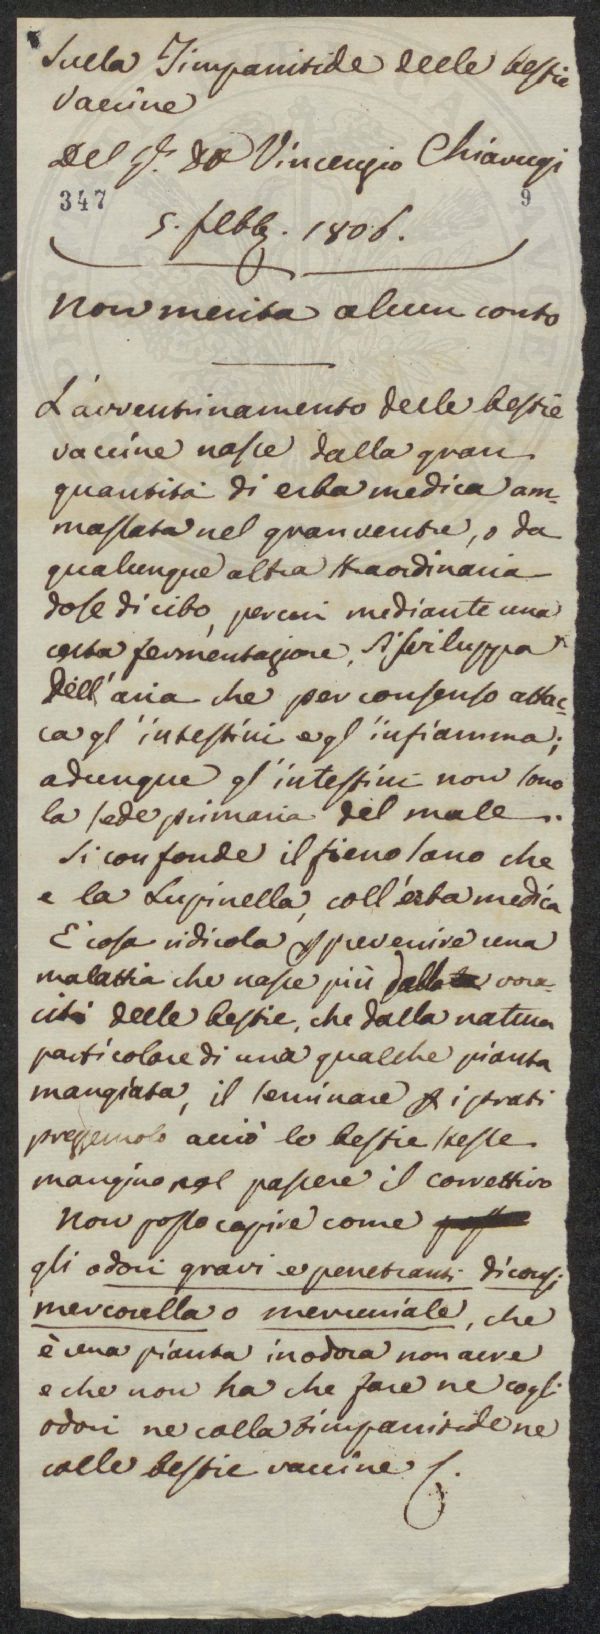 Sulla Timpanitide delle bestie
vaccine
Del Sr. Dr. Vincenzio Chiarugi
347 9
5. febb. 1806.
Non merita alcun conto
L'avventrinamento delle bestie
vaccine nasce dalla gran
quantità di erba medica am-
massata nel gran ventre, o da
qualunque altra straordinaria
dose di cibo, per cui mediante una
certa fermentazione, si sviluppa
dell'aria che per consenso attac-
ca gl'intestini e gl'infiamma;
adunque gl'intestini non sono
la sede primaria del male.
Si confonde il fieno sano che
e la Lupinella, coll'erba medica
E' cosa ridicola p prevenire una
malattia che nasce più dalla vora-
cità delle bestie, che dalla natura
particolare di una qualche pianta
mangiata, il seminare p i prati
prezzemolo acciò le bestie stesse
mangino nel pascere il correttivo
Non posso capire come
gli odori gravi e penetranti di
mercorella o mercuriale, che
è una pianta inodora non acre
e che non ha che fare ne cogli
odori ne colla timpanitide ne
colle bestie vaccine